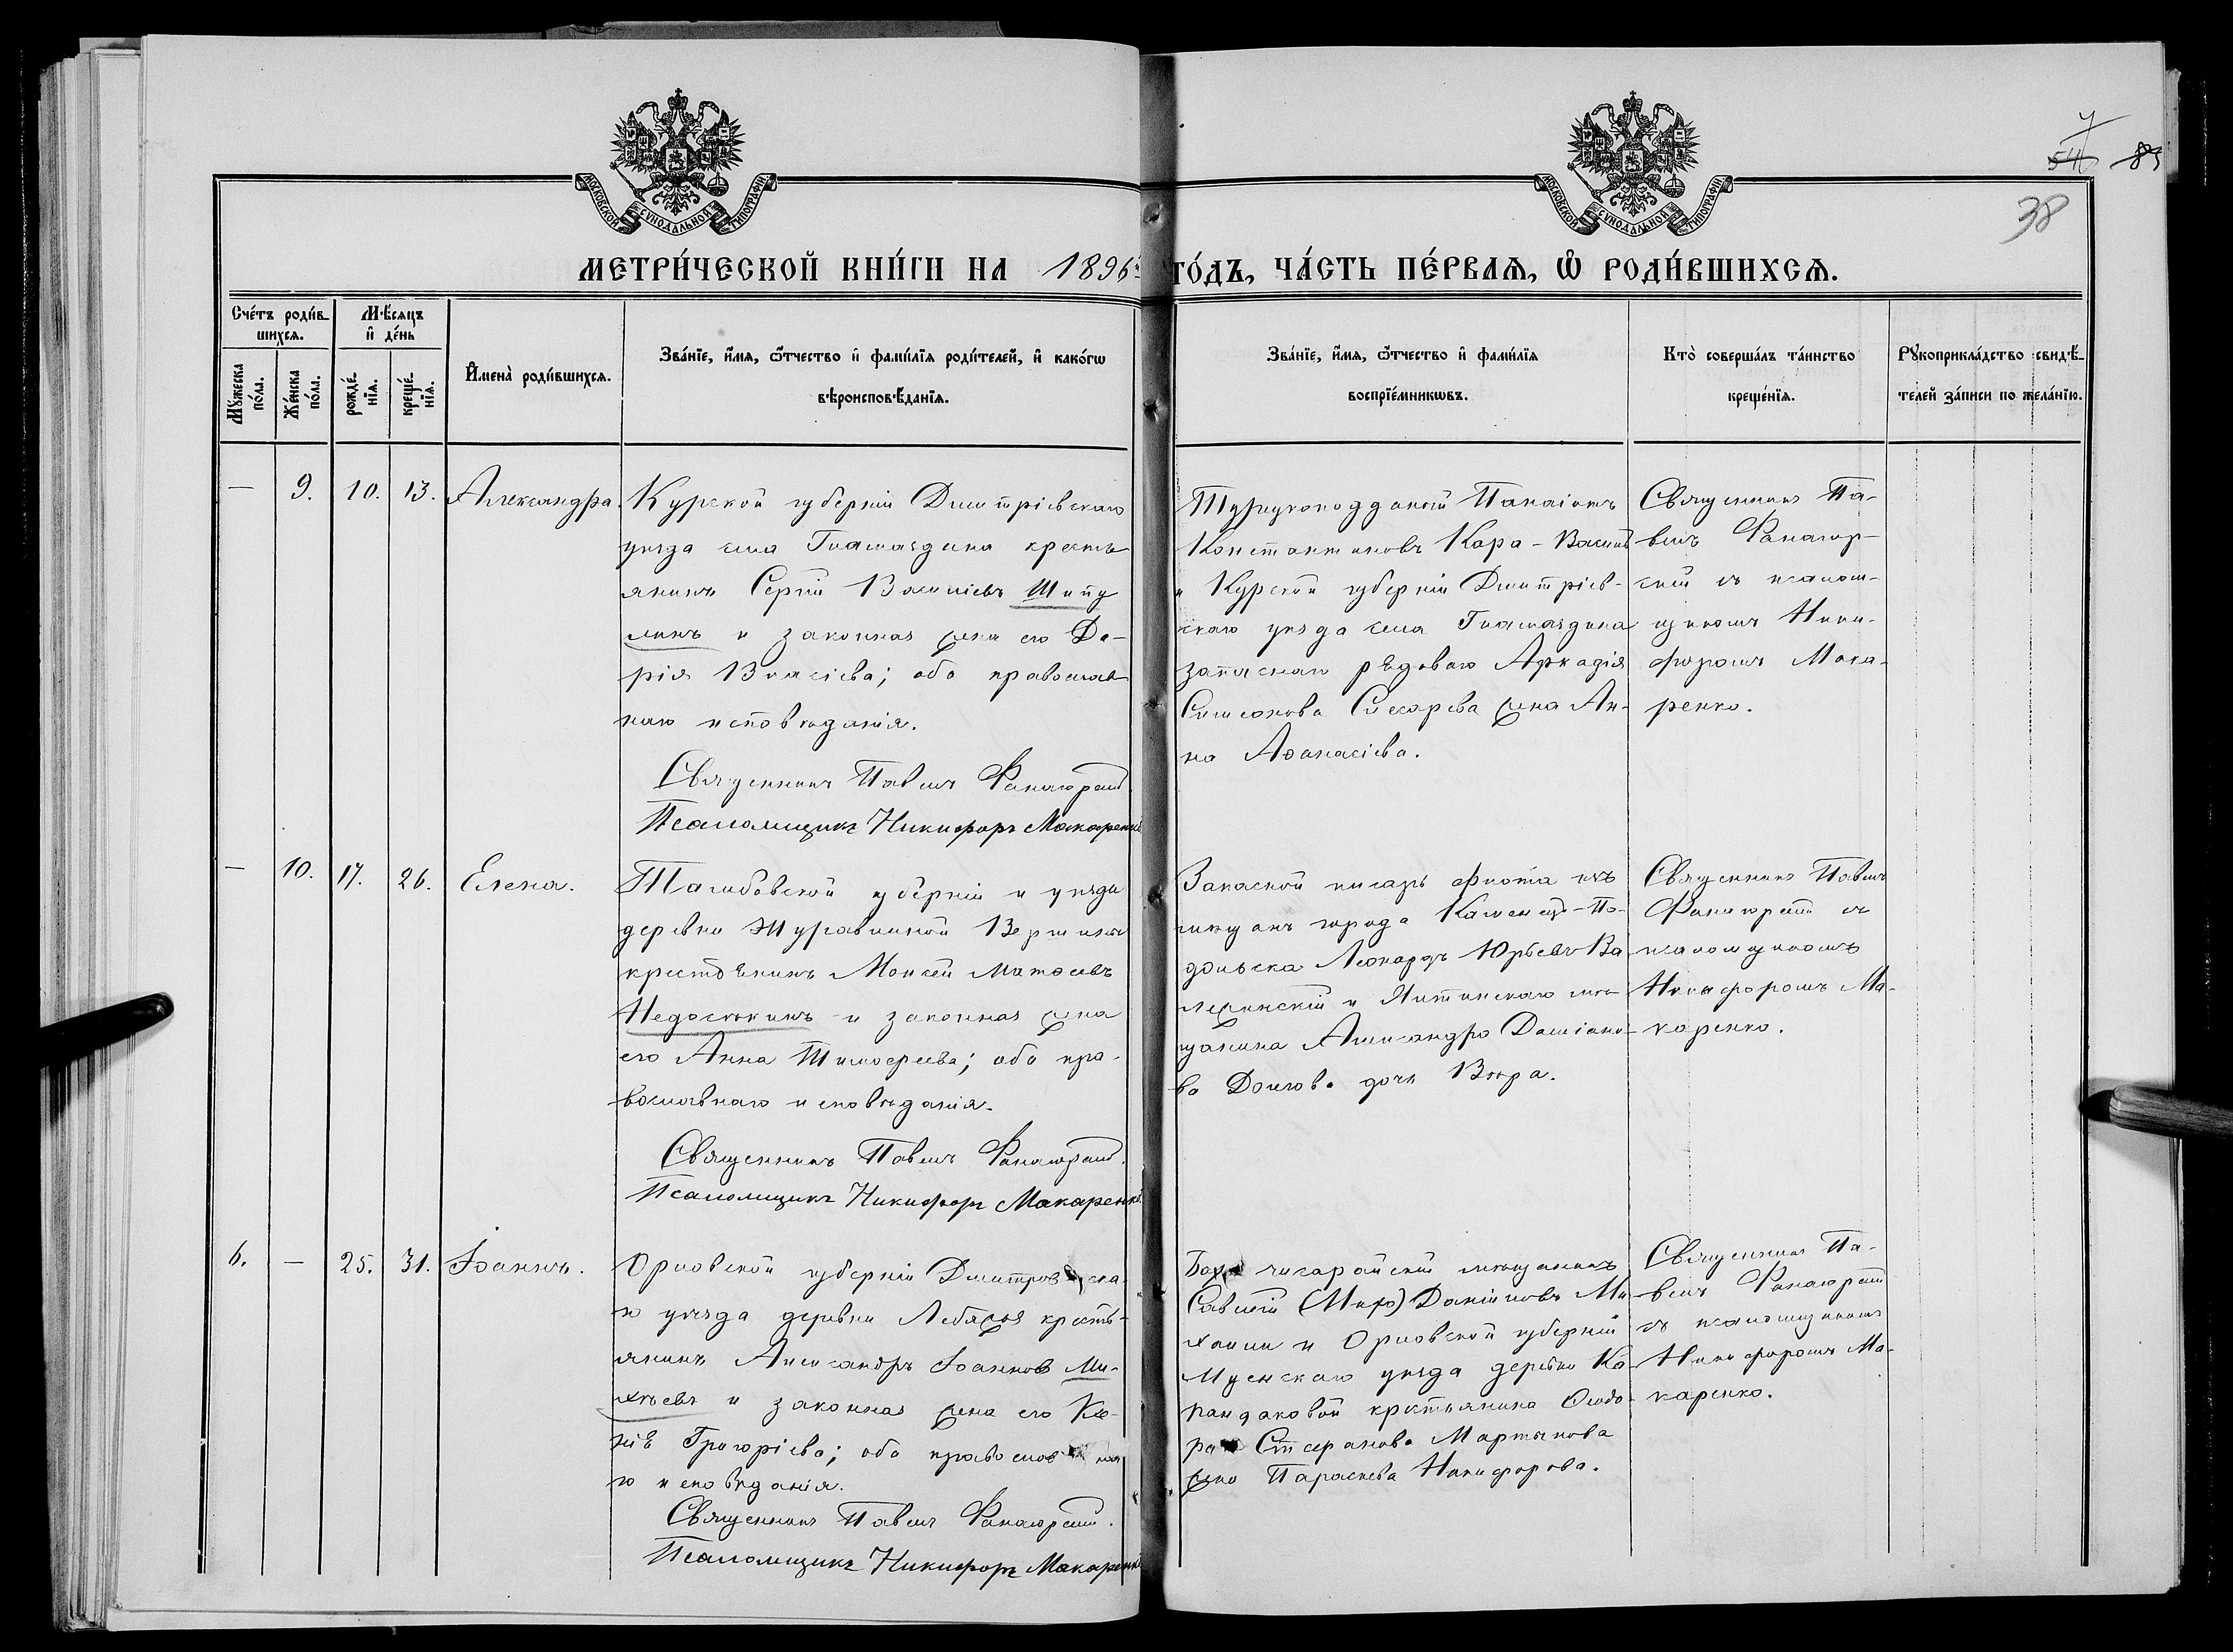 МОСКОВСКОЙ СѴНОДАЛЬНОЙ ТИПОГРАФІИ
МОСКОВСКОЙ СѴНОДАЛЬНОЙ ТИПОГРАФІИ
54 83
38
МЕТРИ́ЧЕСКОЙ КНИ́ГИ НА 1896
ГО́ДЪ, ЧА́СТЬ ПЕ́РВАѦ, Ѡ РОДИ́ВШИХСѦ.
Сче́тъ роди́в-
шихсѧ.
Мѣ́сѧцъ
и де́нь
Мꙋжеска
по́ла.
Же́нска
по́ла.
рожде́-
нїѧ.
креще́-
нїѧ.
Имена̀ роди́вшихсѧ.
Зва́нїе, и́мѧ, ѻ́тчество и фами́лїѧ роди́телей, и како́гѡ
вѣроисповѣ́данїѧ.
Зва́нїе, и́мѧ, ѻ́тчество и фами́лїѧ
воспрїе́мникѡвъ.
Кто̀ соверша́лъ та́инство
креще́нїѧ.
Рꙋкоприкла́дство свидѣ́-
телей за́писи по жела́нїю.
— 9. 10. 13. Александра.
Курской губерніи Дмитріевскаго
уѣзда села Гламаздина кресть-
янинъ Сергій Василіевъ Шипу
линъ и законная жена его Да-
рія Власіева; оба православ
наго исповѣданія.
Священникъ Павелъ Фанагорскій
Псаломщикъ Никифоръ Макаренко
Турецкоподданый Панаіотъ
Константиновъ Кара-Василъ
и Курской губерніи Дмитріев-
скаго уѣзда села Гламаздина
запаснаго рядоваго Аркадія
Симеонова жена Ан-
на Аѳанасіева.
Священникъ Па-
велъ Фанагор-
скій съ псалом-
щикомъ Ники-
форомъ Мака-
ренко.
— 10. 17. 26. Елена.
Тамбовской губерніи и уѣзда
деревни Журавлиной Вершины
крестьянинъ Моисей Матѳеевъ
Недоскокинъ и законная жена
его Анна Тимоѳеева; оба пра-
вославнаго исповѣданія.
Священникъ Павелъ Фанагорскій.
Псаломщикъ Никифоръ Макаренко.
Запасной писарь флота изъ
мѣщанъ города Каменецъ-По-
дольска Леонардъ Юрьевъ Ва
лежинскій и Ялтинскаго мѣ-
щанина Александра Даміано-
ва Долгова дочь Вѣра.
Священникъ Павелъ
Фанагорскій съ
псаломщикомъ
Никифоромъ Ма-
каренко.
6. — 25. 31. Іоаннъ.
Орловской губерніи Дмитровска
го уѣзда деревни Лебяжья кресть-
янинъ Александръ Іоанновъ Ми-
хѣевъ и законная жена его Ксе-
нія Григорієва; оба православна
го исповѣданія.
Священникъ Павелъ Фанагорскій.
Псаломщикъ Никифоръ Макаренко
Бахчисарайскій мѣщанинъ
Савелій Даніиловъ Ми
хаили и Орловской губерніи
Мценскаго уѣзда деревни Ка-
рандаковой крестьянина Ѳеодо-
ра Стефанова Мартынова
жена Параскева Никифорова.
Священникъ Па-
велъ Фанагорскій
съ псаломщикомъ
Никифоромъ Ма-
каренко.